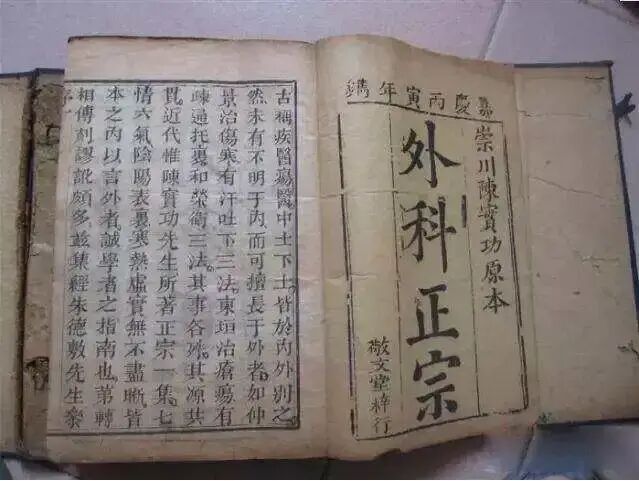 嘉慶丙寅年鐫
崇川陳實功原本
外科正宗
敬文堂梓行
古稱疾醫瘍醫中士下士皆於內外判之
然未有不明于內而可擅長于外者如仲
景治傷寒有汗吐下三法東垣治瘡瘍有
疎通托裏和榮衛三法其事各殊其源共
貫近代惟陳實功先生所著正宗一集七
情六氣陰陽表裏寒熱虛實無不盡晰皆
本之內以言外者誠學者之指南也第轉
相傳刻謬訛頗多玆集經朱德敷先生叅